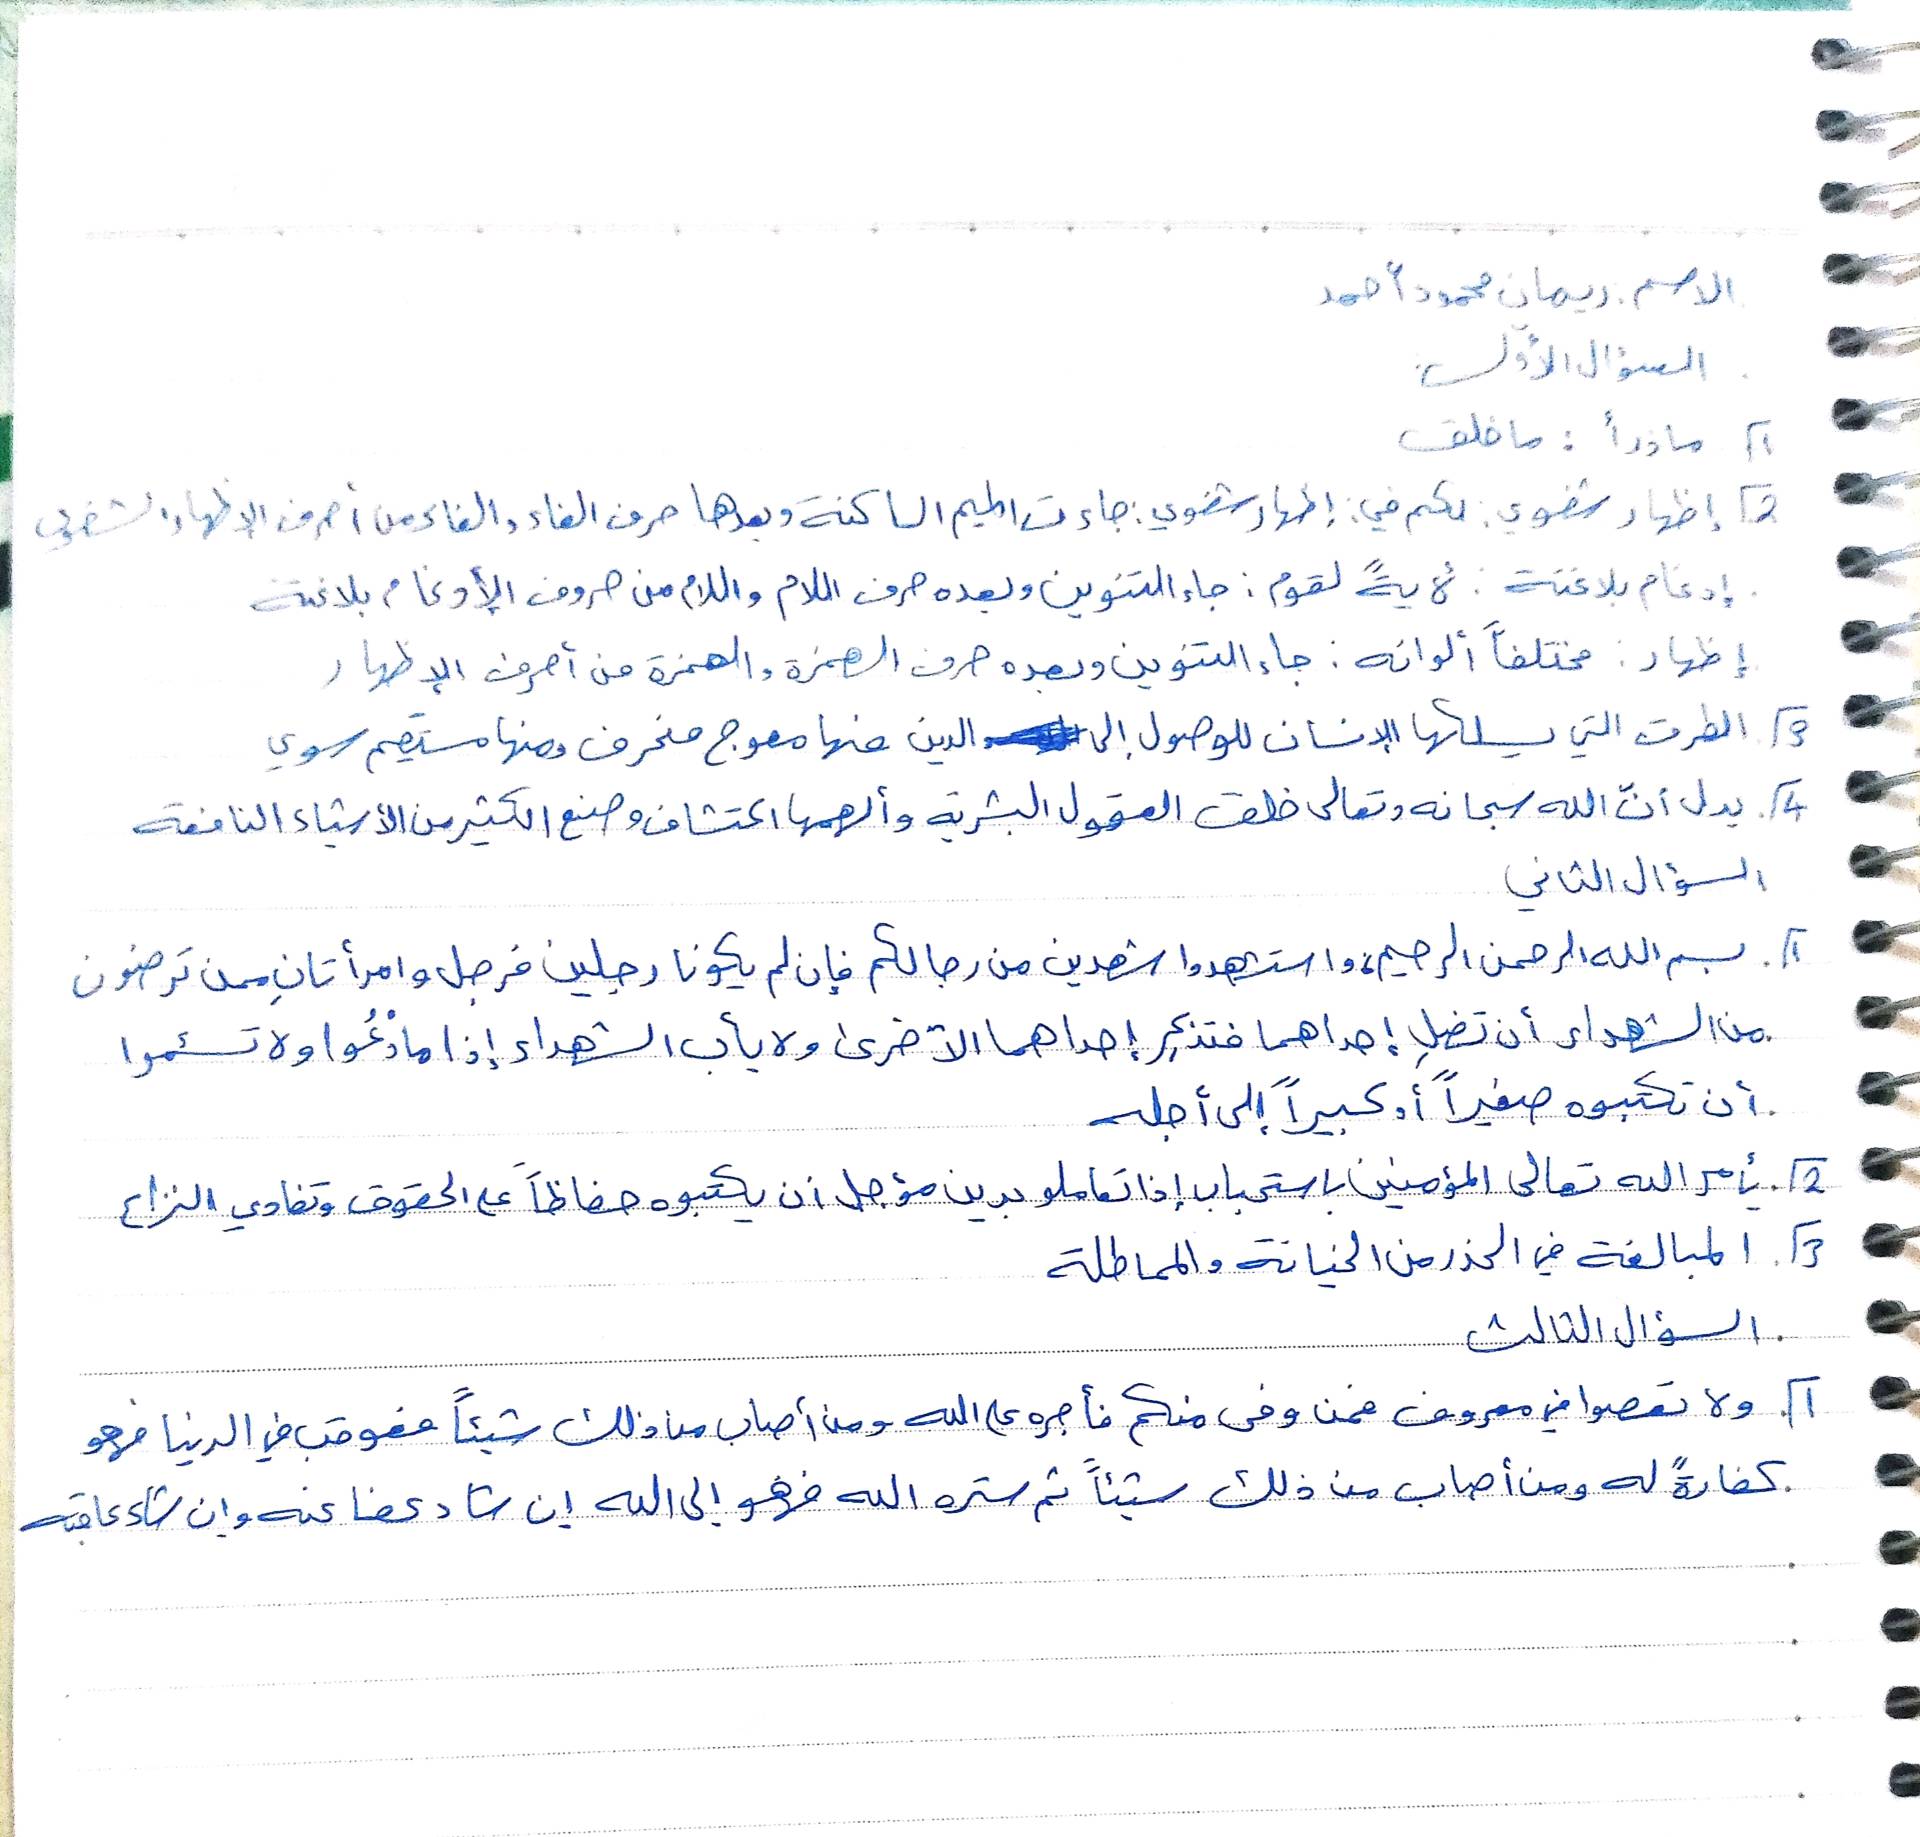 الاسم. ريمان محمود أحمد
السؤال الأول:
1) ما ذرأ : ما خلق
2) إظهار شفوي: لكم في: إظهار شفوي: جاءت الميم الساكنة وبعدها حرف الفاء والفاء من أحرف الإظهار الشفوي
إدغام بلا غنة : لآيةً لقوم : جاء التنوين وبعده حرف اللام واللام من حروف الإدغام بلا غنة
إظهار : مختلفاً ألوانه : جاء التنوين وبعده حرف الهمزة والهمزة من أحرف الإظهار
3). الطرق التي يسلكها الإنسان للوصول إلى الدين منها معوج منحرف ومنها مستقيم سوي
4). يدل أنّ الله سبحانه وتعالى خلق العقول البشرية وألهمها اكتشاف وصنع الكثير من الأشياء النافعة
السؤال الثاني
1). بسم الله الرحمن الرحيم، واستشهدوا شهدين من رجالكم فإن لم يكونا رجلين فرجل وامرأتانِ ممن تَرضون
من الشهداء أن تضل إحداهما فتذكِر إحداهما الآخرىٰ ولا يأب الشهداء إذا ما دُعُوا ولا تسئموا
أن تكتبوه صغيراً أو كبيراً إلى أجله
2). يأمر الله تعالى المؤمنين باستحباب إذا تعاملو بدين مؤجل أن يكتبوه حفاظاً على الحقوق وتفادي النزاع
3). المبالغة في الحذر من الخيانة والمماطلة
السؤال الثالث
1). ولا تعصوا في معروف فمن وفى منكم فأجره على الله ومن أصاب من ذلك شيئاً فعوقب في الدنيا فهو
كفارةً له ومن أصاب من ذلك شيئاً ثم ستره الله فهو إلى الله إن شاء عفا عنه وإن شاء عاقبه